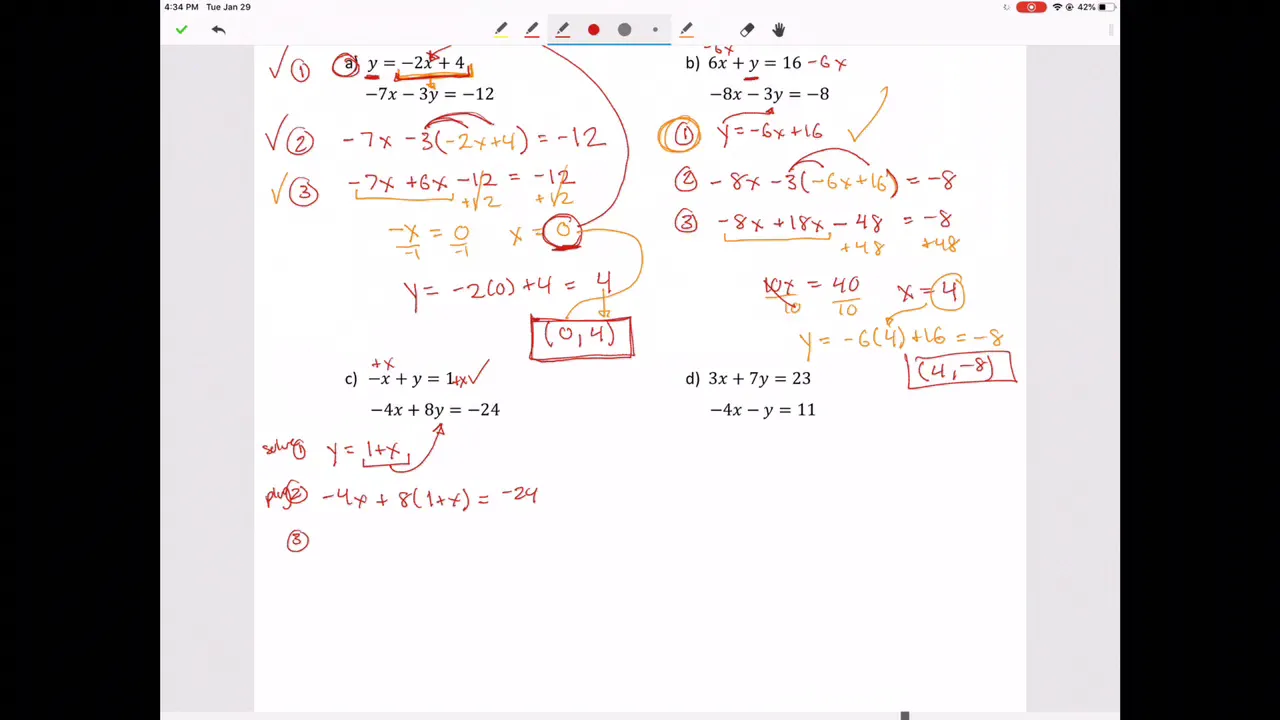 4:34 PM Tue Jan 29
42%
✓① a) y = −2x + 4
−7x − 3y = −12
✓② −7x −3(−2x+4) = −12
✓③ −7x +6x −12 = −12
+12 +12
−x = 0 x = 0
−1 −1
y = −2(0) +4 = 4
(0, 4)
−6x
b) 6x + y = 16 −6x
−8x − 3y = −8
① y = −6x+16 ✓
② −8x −3(−6x+16) = −8
③ −8x +18x − 48 = −8
+48 +48
10x = 40 x = 4
10 10
y = −6(4) +16 = −8
(4, −8)
+x
c) −x + y = 1+x ✓
−4x + 8y = −24
solve① y = 1+x
plug② −4x + 8(1+x) = −24
③
d) 3x + 7y = 23
−4x − y = 11